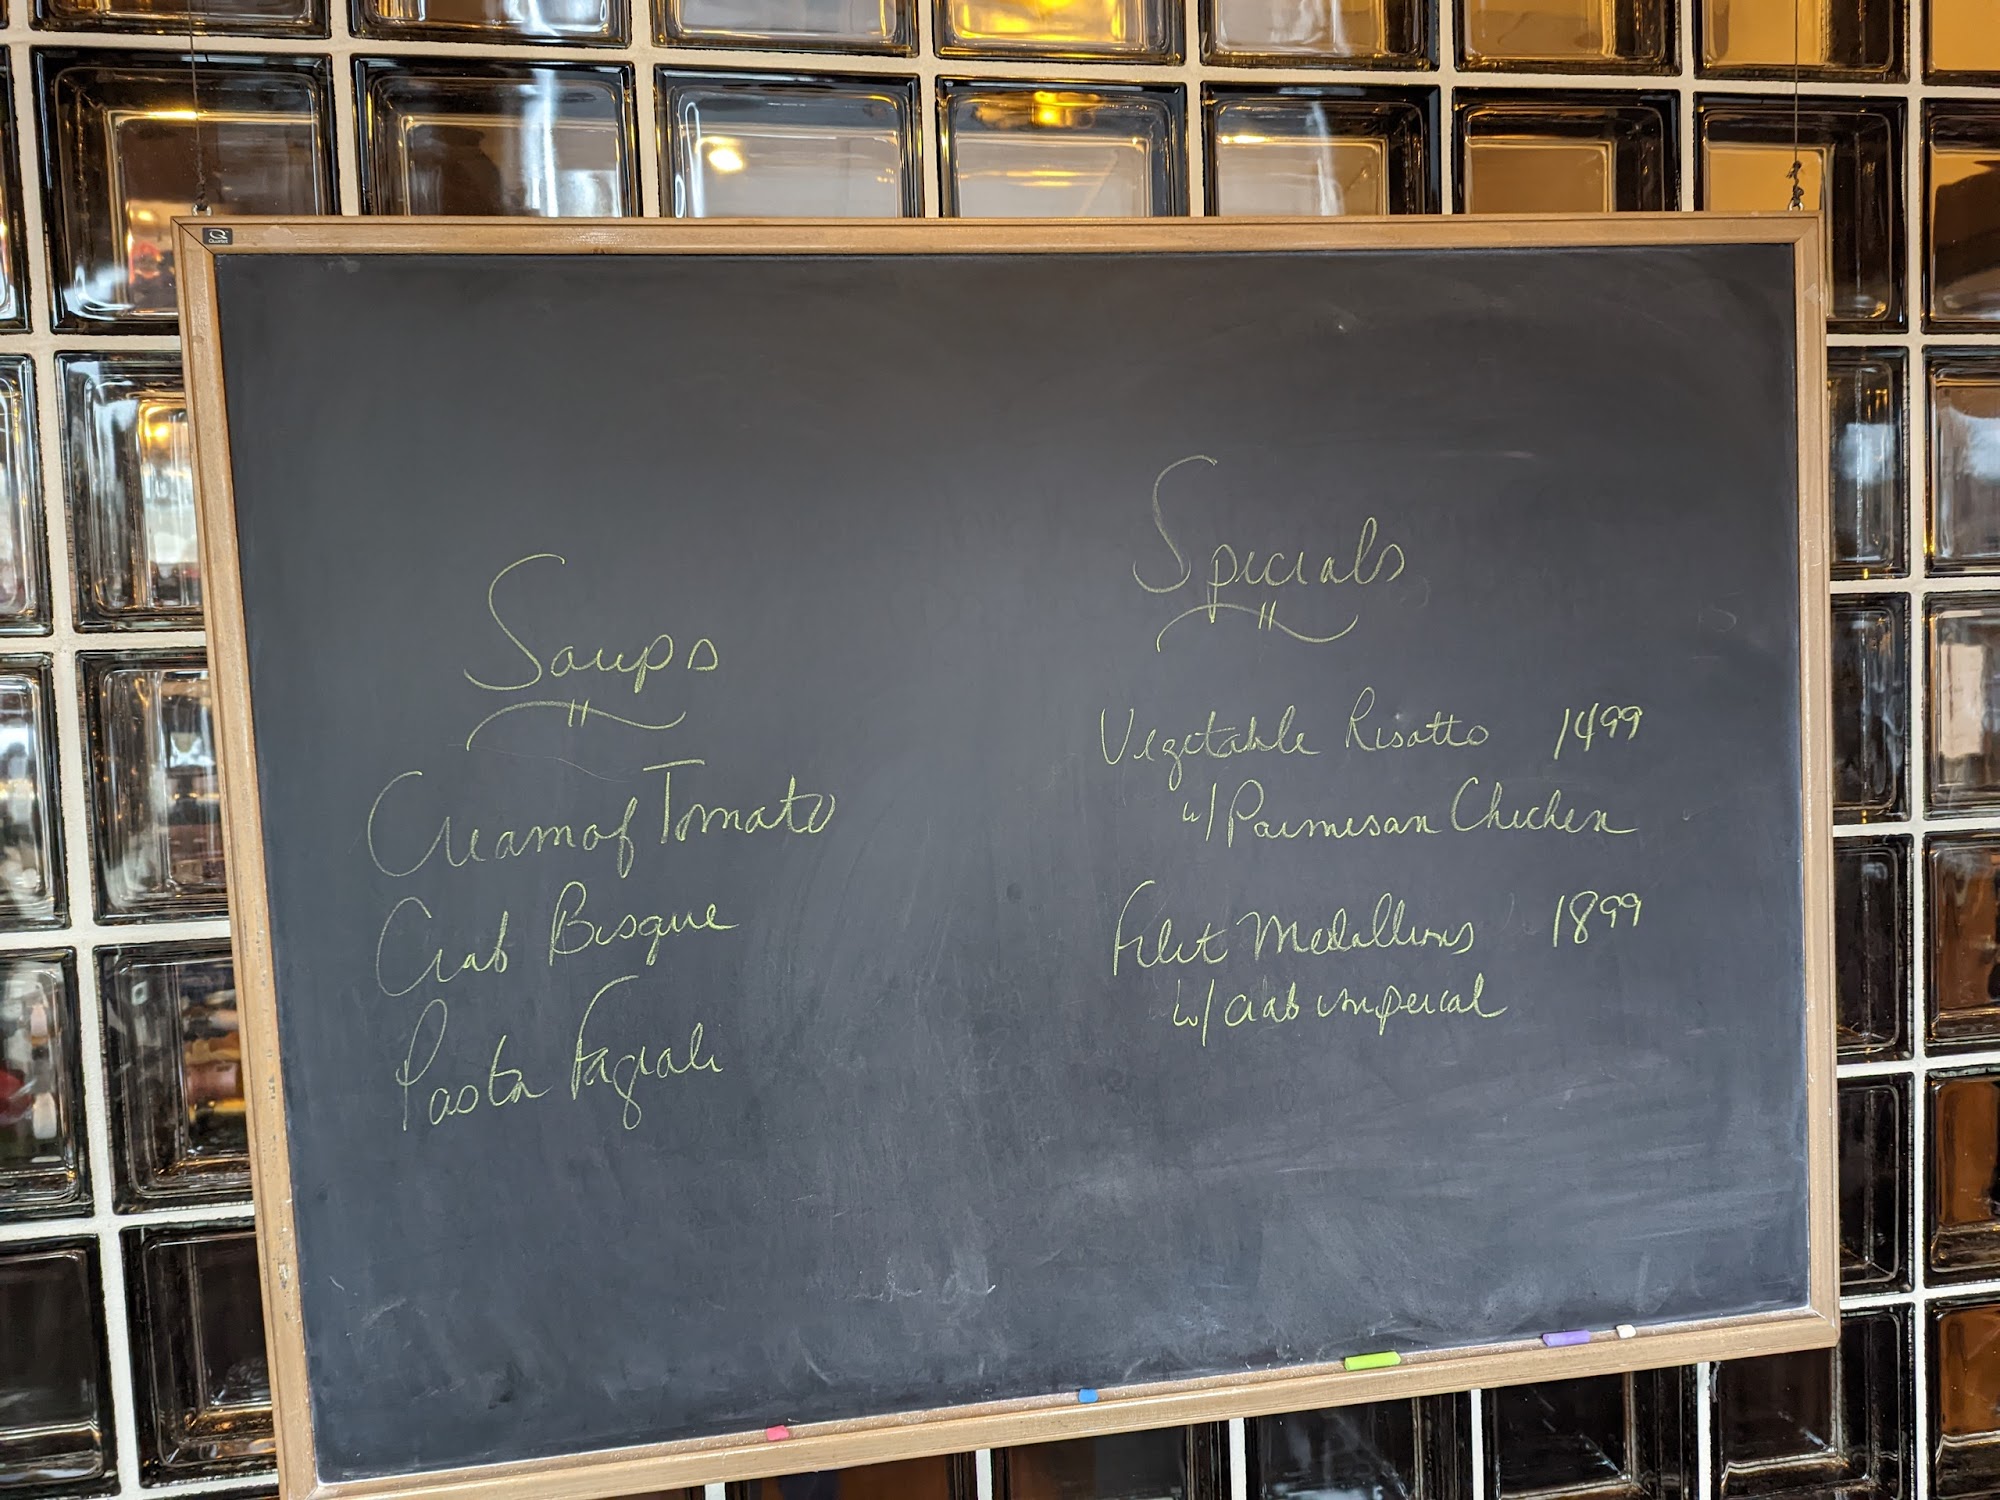 Quartet
Soups
Cream of Tomato
Crab Bisque
Pasta Fagioli
Specials
Vegetable Risotto 1499
w/ Parmesan Chicken
Filet Medallions 1899
w/ crab imperial